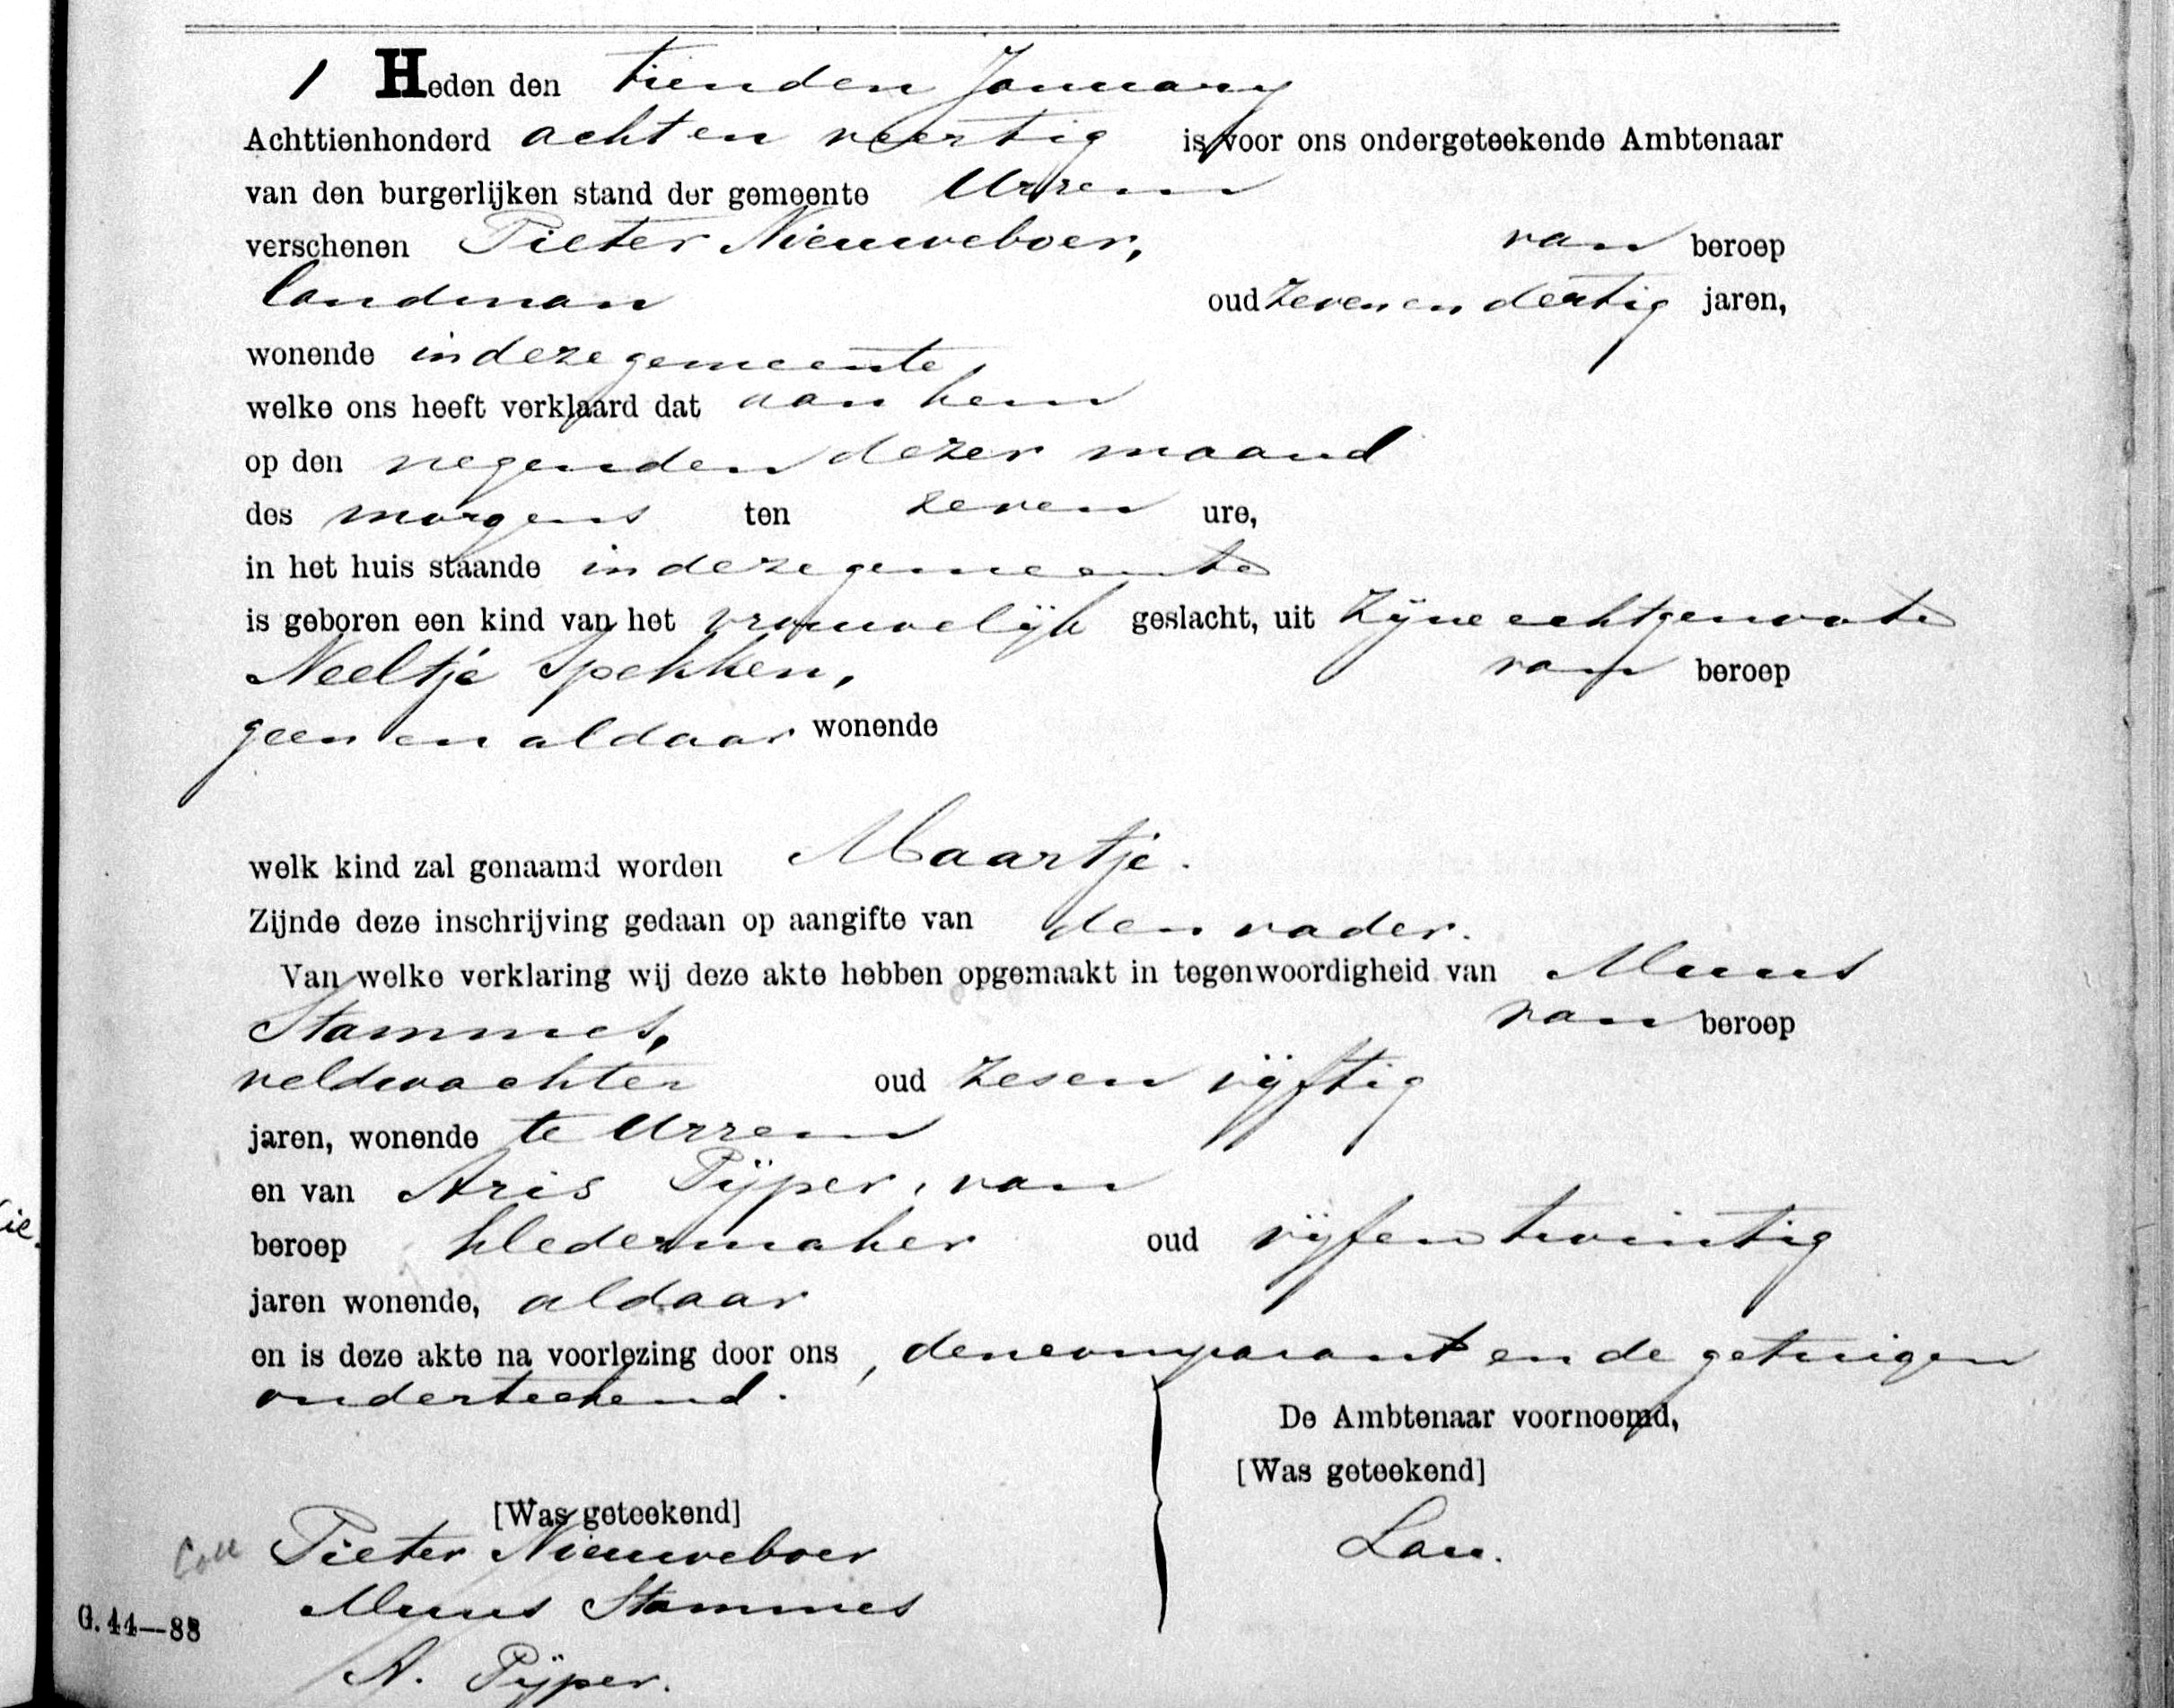 1 Heden den tienden January
Achttienhonderd acht en veertig is voor ons ondergeteekende Ambtenaar
van den burgerlijken stand der gemeente Ursem
verschenen Pieter Nieuweboer, van beroep
landman oud zeven en dertig jaren,
wonende in deze gemeente
welke ons heeft verklaard dat aan hem
op den negenden dezer maand
des morgens ten zeven ure,
in het huis staande in deze gemeente
is geboren een kind van het vrouwelijk geslacht, uit zijne echtgenoote
Neeltje Spekken, van beroep
geen en aldaar wonende
welk kind zal genaamd worden Maartje.
Zijnde deze inschrijving gedaan op aangifte van den vader.
Van welke verklaring wij deze akte hebben opgemaakt in tegenwoordigheid van Muus
Stammes, van beroep
veldwachter oud zes en vijftig
jaren, wonende te Ursem
en van Aris Pijper, van
beroep kledermaker oud vijf en twintig
jaren wonende, aldaar
en is deze akte na voorlezing door ons, den comparant en de getuigen
onderteekend.
De Ambtenaar voornoemd,
[Was geteekend]
Lau.
[Was geteekend]
Coll Pieter Nieuweboer
Muus Stammes
A. Pijper.
G. 44—88